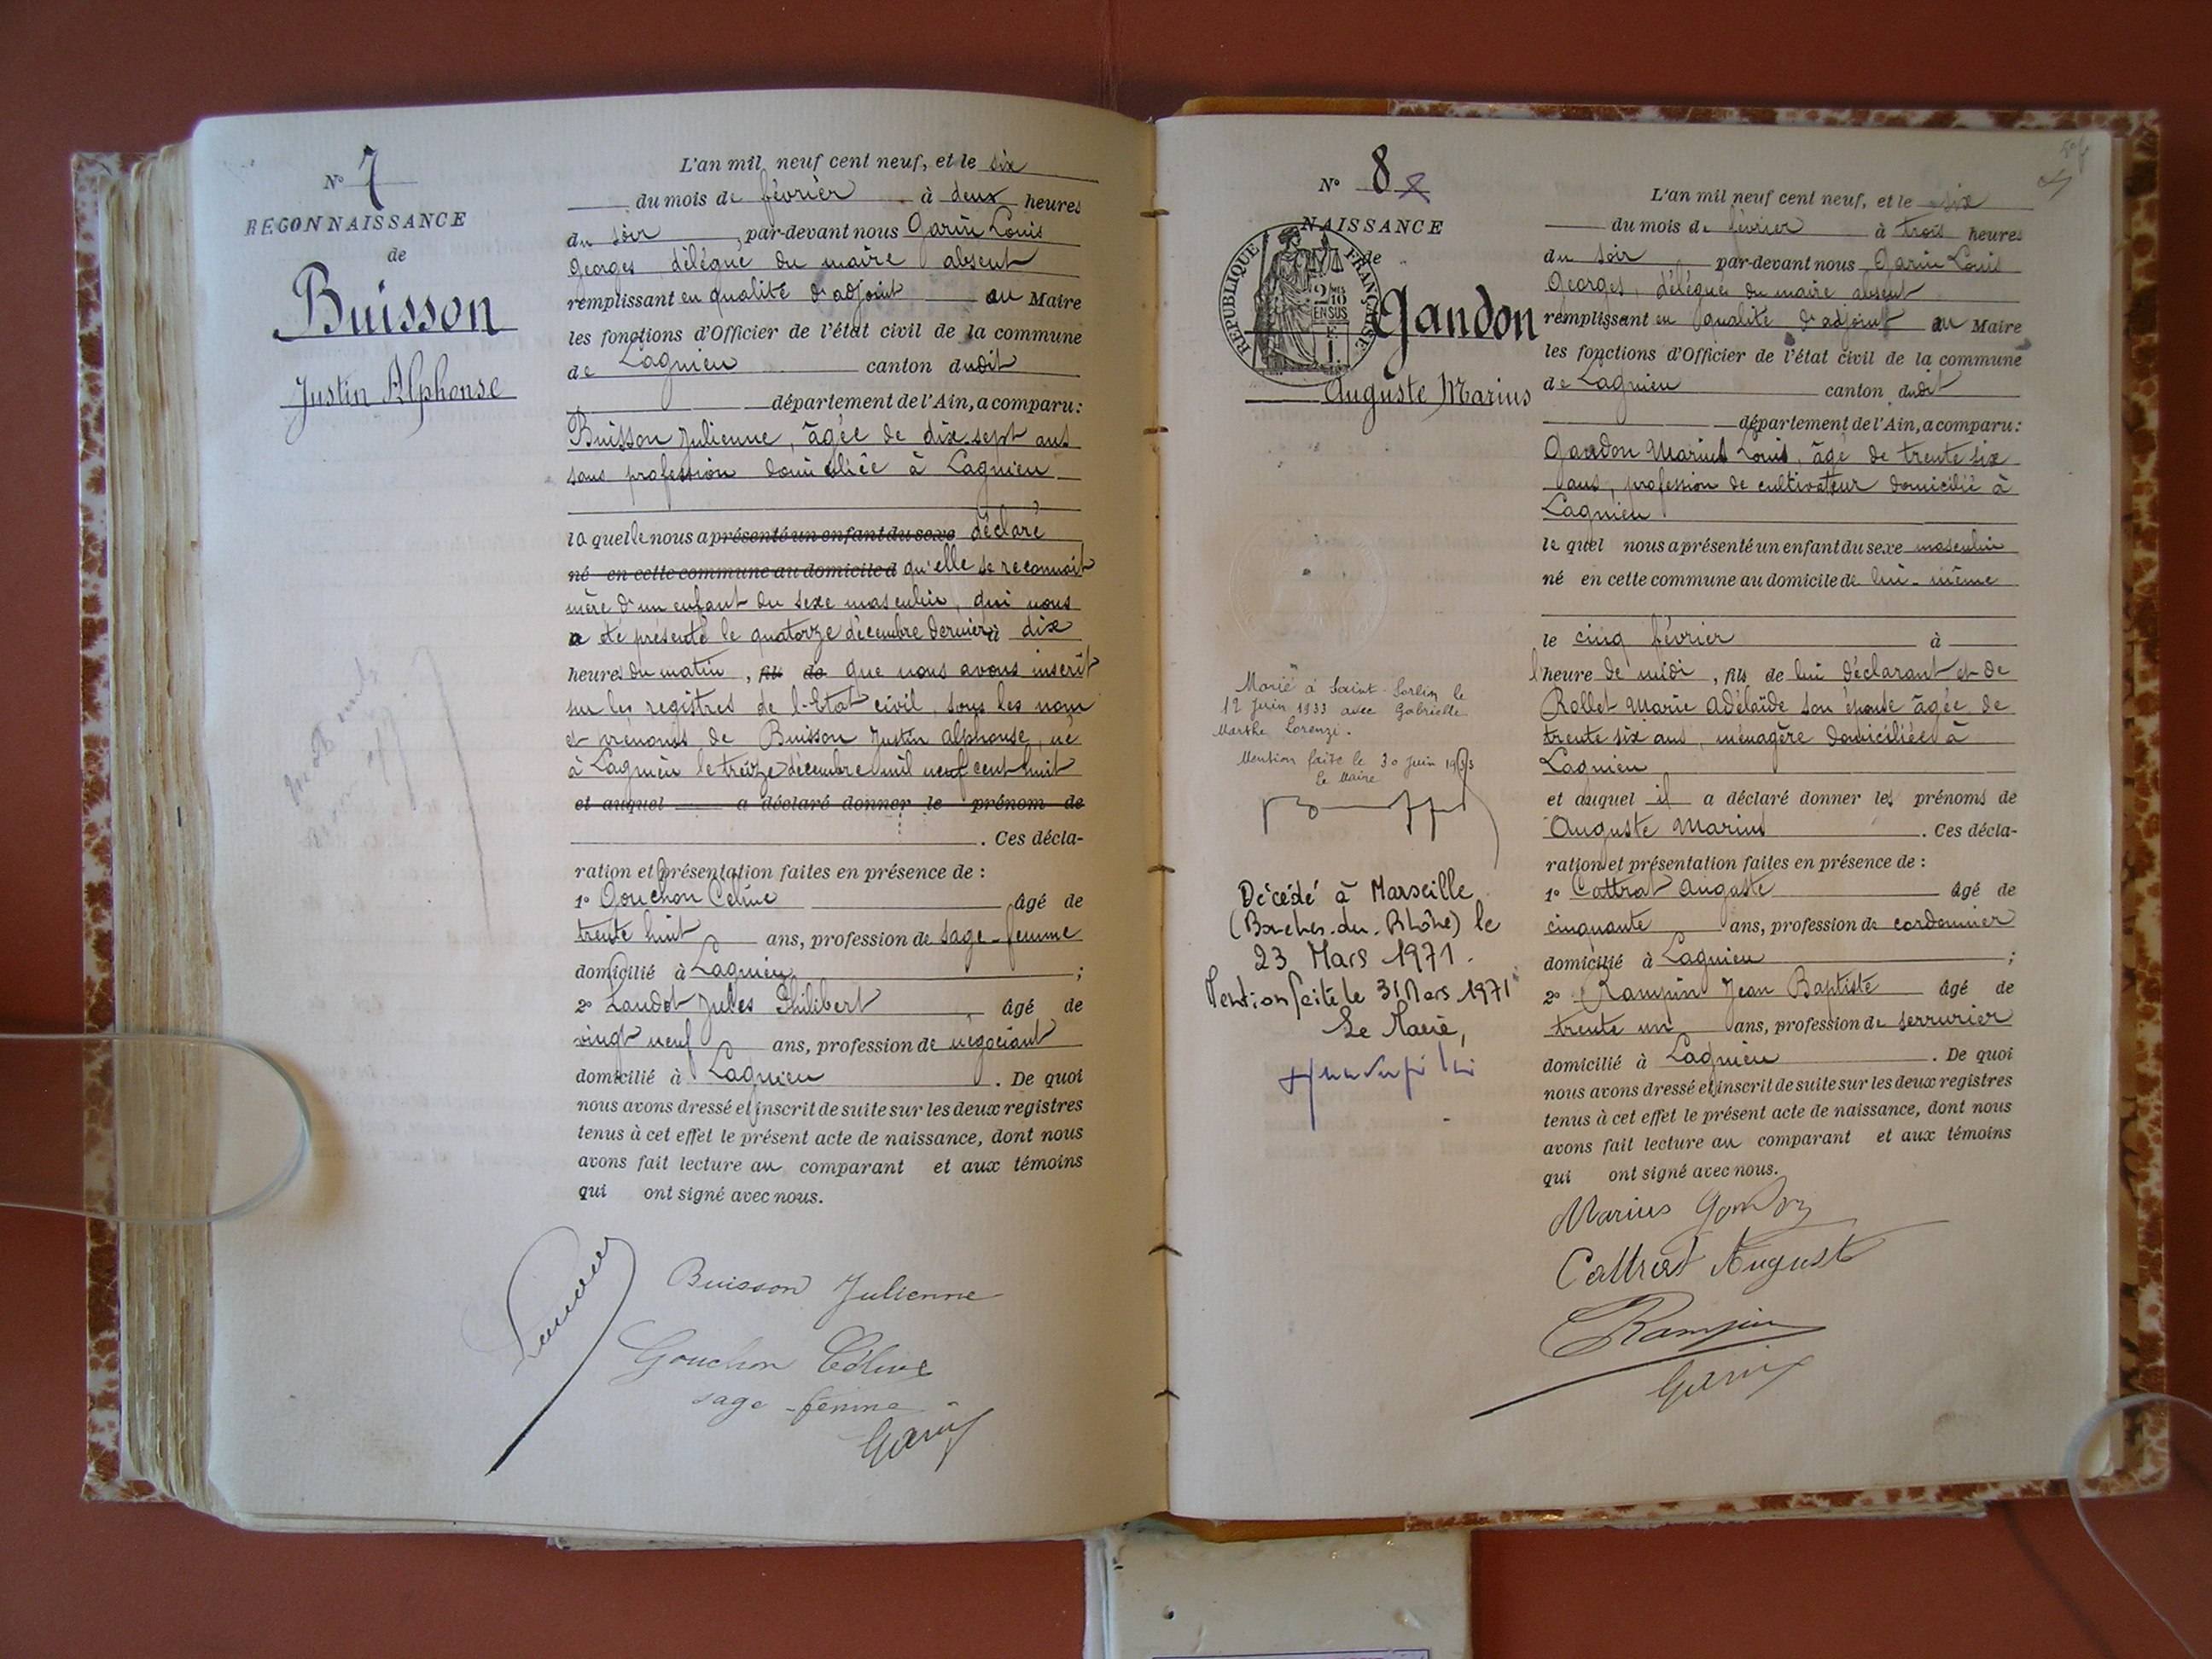 N° 7
RECONNAISSANCE
de
Buisson
Justin Alphonse
L'an mil neuf cent neuf, et le six
du mois de février à deux heures
du soir, par-devant nous Garin Louis
Georges délégué du maire absent
remplissant en qualité d'adjoint au Maire
les fonctions d'Officier de l'état civil de la commune
de Lagnieu canton dudit
département de l'Ain, a comparu:
Buisson Julienne, âgée de dix sept ans
sans profession domiciliée à Lagnieu
laquelle nous a présenté un enfant du sexe déclaré
né en cette commune au domicile d qu'elle se reconnait
mère d'un enfant du sexe masculin, qui nous
a été présenté le quatorze décembre dernier à dix
heures du matin, fils de que nous avons inscrit
sur les registres de l'Etat civil, sous les nom
et prénoms de Buisson Justin Alphonse, né
à Lagnieu le treize décembre mil neuf cent huit
et auquel a déclaré donner le prénom de
. Ces décla-
ration et présentation faites en présence de :
1° Gouchon Celine âgé de
trente huit ans, profession de sage-femme
domicilié à Lagnieu ;
2° Landot Jules Philibert âgé de
vingt neuf ans, profession de négociant
domicilié à Lagnieu . De quoi
nous avons dressé et inscrit de suite sur les deux registres
tenus à cet effet le présent acte de naissance, dont nous
avons fait lecture au comparant et aux témoins
qui ont signé avec nous.
Buisson Julienne
Gouchon Céline
sage-femme
Garin
N° 8
NAISSANCE
de
REPUBLIQUE FRANÇAISE
2 MES
10
EN SUS
Gandon
Auguste Marius
Marié à Saint-Sorlin le
12 juin 1933 avec Gabrielle
Marthe Lorenzi.
Mention faite le 30 juin 1933
Le Maire
Décédé à Marseille
(Bouches-du-Rhône) le
23 Mars 1971.
Mention faite le 31 Mars 1971
Le Maire,
L'an mil neuf cent neuf, et le six
du mois de février à trois heures
du soir par-devant nous Garin Louis
Georges, délégué du maire absent
remplissant en qualité d'adjoint au Maire
les fonctions d'Officier de l'état civil de la commune
de Lagnieu canton dudit
département de l'Ain, a comparu:
Gandon Marius Louis, âgé de trente six
ans, profession de cultivateur domicilié à
Lagnieu
lequel nous a présenté un enfant du sexe masculin
né en cette commune au domicile de lui-même
le cinq février à
l'heure de midi, fils de lui déclarant et de
Rollet Marie Adélaïde son épouse âgée de
trente six ans, ménagère domiciliée à
Lagnieu
et auquel il a déclaré donner les prénoms de
Auguste Marius . Ces décla-
ration et présentation faites en présence de :
1° Cattrat Auguste âgé de
cinquante ans, profession de cordonnier
domicilié à Lagnieu ;
2° Rampin Jean Baptiste âgé de
trente un ans, profession de serrurier
domicilié à Lagnieu . De quoi
nous avons dressé et inscrit de suite sur les deux registres
tenus à cet effet le présent acte de naissance, dont nous
avons fait lecture au comparant et aux témoins
qui ont signé avec nous.
Marius Gandon
Cattrat Auguste
Rampin
Garin